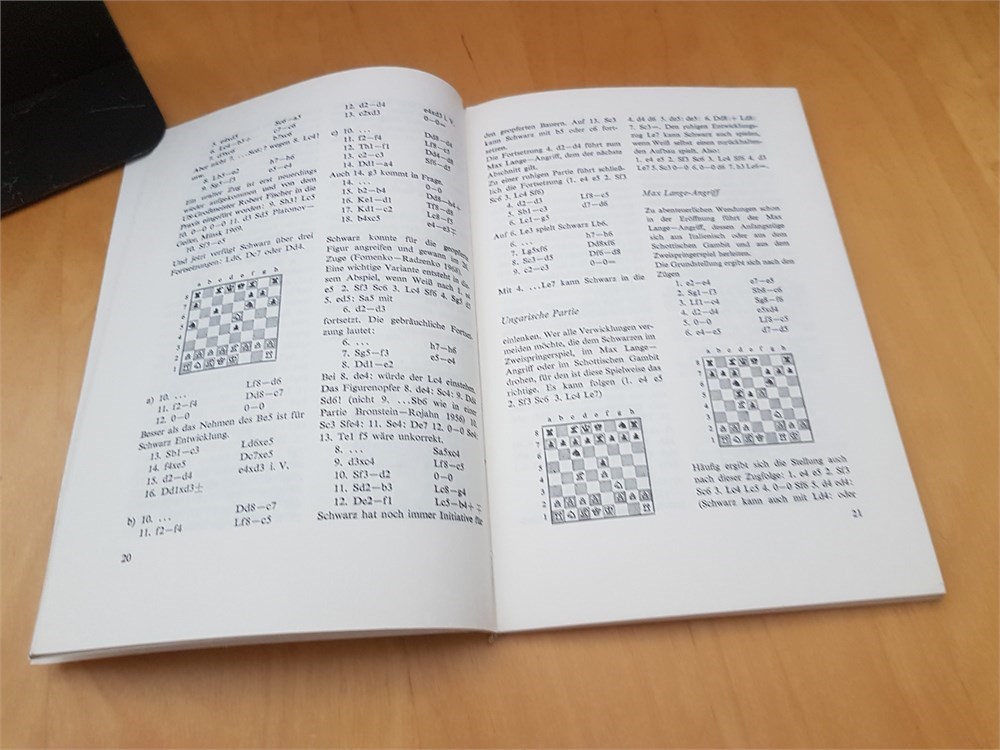 5. e4xd5 Sc6—a5
6. Lc4—b5+ c7—c6
7. d5xc6 b7xc6
Aber nicht 7. ...Sc6:? wegen 8. Lc4!
8. Lb5—e2 h7—h6
9. Sg5—f3 e5—e4
Ein uralter Zug ist erst neuerdings
wieder aufgekommen und von dem
US-Großmeister Robert Fischer in die
Praxis eingeführt worden: 9. Sh3! Lc5
10. 0—0 0—0 11. d3 Sd5 Platonow—
Geller, Minsk 1969.
10. Sf3—e5
Und jetzt verfügt Schwarz über drei
Fortsetzungen: Ld6, Dc7 oder Dd4.
a b c d e f g h
8
7
6
5
4
3
2
1
a) 10. ... Lf8—d6
11. f2—f4 Dd8—c7
12. 0—0 0—0
Besser als das Nehmen des Be5 ist für
Schwarz Entwicklung.
13. Sb1—c3 Ld6xe5
14. f4xe5 Dc7xe5
15. d2—d4 e4xd3 i. V.
16. Dd1xd3±
b) 10. ... Dd8—c7
11. f2—f4 Lf8—c5
20
12. d2—d4 e4xd3 i. V.
13. c2xd3 0—0=
c) 10. ... Dd8—d4
11. f2—f4 Lf8—c5
12. Th1—f1 Dd4—d8
13. c2—c3 Sf6—d5
14. Dd1—a4
Auch 14. g3 kommt in Frage.
14. ... 0—0
15. b2—b4 Dd8—h4+
16. Ke1—d1 Tf8—d8
17. Kd1—c2 Lc8—f5
18. b4xc5 e4—e3
Schwarz konnte für die geopferte
Figur angreifen und gewann im 20.
Zuge (Fomenko—Radzenko 1968).
Eine wichtige Variante entsteht in die-
sem Abspiel, wenn Weiß nach 1. e4
e5 2. Sf3 Sc6 3. Lc4 Sf6 4. Sg5 d5
5. ed5: Sa5 mit
6. d2—d3
fortsetzt. Die gebräuchliche Fortset-
zung lautet:
6. ... h7—h6
7. Sg5—f3 e5—e4
8. Dd1—e2
Bei 8. de4: würde der Lc4 einstehen.
Das Figurenopfer 8. de4: Sc4: 9. Dd4
Sd6! (nicht 9. ...Sb6 wie in einer
Partie Bronstein—Rojahn 1956) 10.
Sc3 Sfe4: 11. Se4: De7 12. 0—0 Se4:
13. Te1 f5 wäre unkorrekt.
8. ... Sa5xc4
9. d3xc4 Lf8—c5
10. Sf3—d2 0—0
11. Sd2—b3 Lc8—g4
12. De2—f1 Lc5—b4+∓
Schwarz hat noch immer Initiative für
den geopferten Bauern. Auf 13. Sc3
kann Schwarz mit b5 oder c6 fort-
setzen.
Die Fortsetzung 4. d2—d4 führt zum
Max Lange—Angriff, dem der nächste
Abschnitt gilt.
Zu einer ruhigen Partie führt schließ-
lich die Fortsetzung (1. e4 e5 2. Sf3
Sc6 3. Lc4 Sf6)
4. d2—d3 Lf8—c5
5. Sb1—c3 d7—d6
6. Lc1—g5
Auf 6. Le3 spielt Schwarz Lb6.
6. ... h7—h6
7. Lg5xf6 Dd8xf6
8. Sc3—d5 Df6—d8
9. c2—c3 0—0=
Mit 4. ...Le7 kann Schwarz in die
Ungarische Partie
einlenken. Wer alle Verwicklungen ver-
meiden möchte, die dem Schwarzen im
Zweispringerspiel, im Max Lange—
Angriff oder im Schottischen Gambit
drohen, für den ist diese Spielweise das
richtige. Es kann folgen (1. e4 e5
2. Sf3 Sc6 3. Lc4 Le7)
a b c d e f g h
8
7
6
5
4
3
2
1
4. d4 d6 5. de5: de5: 6. Dd8:+ Ld8:
7. Sc3=. Den ruhigen Entwicklungs-
zug Le7 kann Schwarz auch spielen,
wenn Weiß selbst einen zurückhalten-
den Aufbau spielt. Also:
1. e4 e5 2. Sf3 Sc6 3. Lc4 Sf6 4. d3
Le7 5. Sc3 0—0 6. 0—0 d6 7. h3 Le6=.
Max Lange-Angriff
Zu abenteuerlichen Wendungen schon
in der Eröffnung führt der Max
Lange—Angriff, dessen Anfangszüge
sich aus Italienisch oder aus dem
Schottischen Gambit und aus dem
Zweispringerspiel herleiten.
Die Grundstellung ergibt sich nach den
Zügen
1. e2—e4 e7—e5
2. Sg1—f3 Sb8—c6
3. Lf1—c4 Sg8—f6
4. d2—d4 e5xd4
5. 0—0 Lf8—c5
6. e4—e5 d7—d5
a b c d e f g h
8
7
6
5
4
3
2
1
Häufig ergibt sich die Stellung auch
nach dieser Zugfolge: 1. e4 e5 2. Sf3
Sc6 3. Lc4 Lc5 4. 0—0 Sf6 5. d4 ed4:
(Schwarz kann auch mit Ld4: oder
21